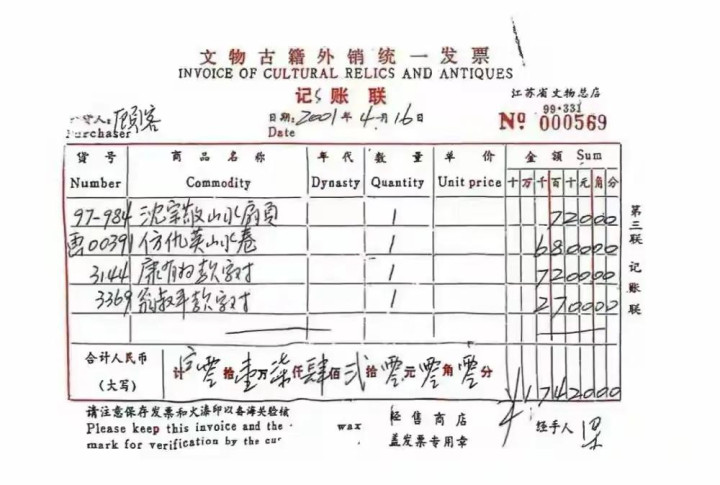 文物古籍外销统一发票
INVOICE OF CULTURAL RELICS AND ANTIQUES
记账联
江苏省文物总店
99·331
货人:顾客 日期:2001年4月16日 № 000569
Purchaser Date
货号 商品名称 年代 数量 单价 金额 Sum
Number Commodity Dynasty Quantity Unit price 十万千百十元角分
97-984 沈宗敬山水扇页 1 72000
画00391 仿仇英山水卷 1 680000
3144 康有为款字对 1 720000
3369 翁叔平款字对 1 270000
第三联 记账联
合计人民币
(大写)
计 零拾壹万柒仟肆佰贰拾零元零角零分 ¥1742000
请注意保存发票和火漆印以备海关验核
Please keep this invoice and the wax
mark for verification by the cur
经售商店
盖发票专用章
经手人 梁